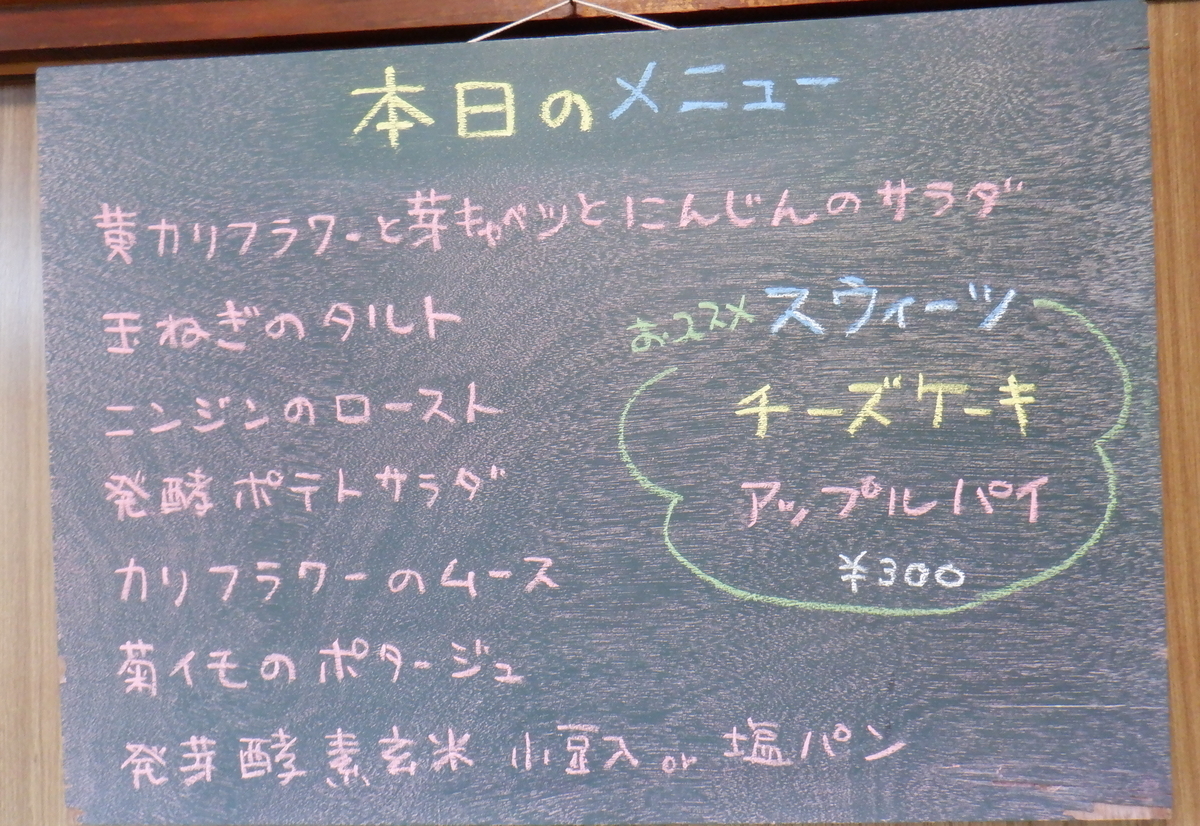 本日のメニュー
黄カリフラワーと芽キャベツとにんじんのサラダ
玉ねぎのタルト
ニンジンのロースト
発酵ポテトサラダ
カリフラワーのムース
菊イモのポタージュ
発芽酵素玄米 小豆入 or 塩パン
おススメ スウィーツ
チーズケーキ
アップルパイ
¥300